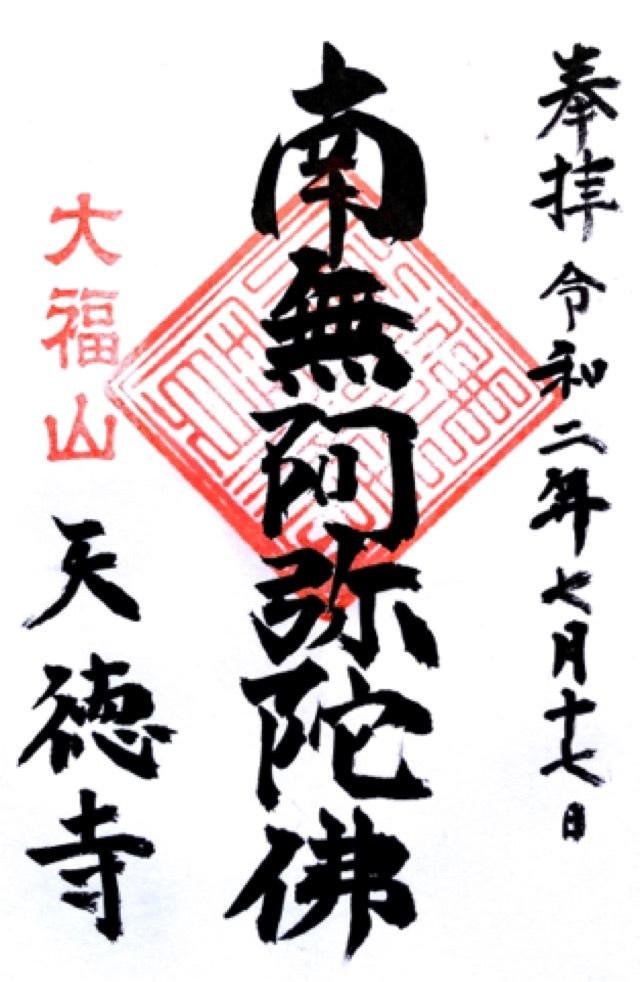 奉拝 令和二年七月十七日
南無阿弥陀佛
大福山
天徳寺